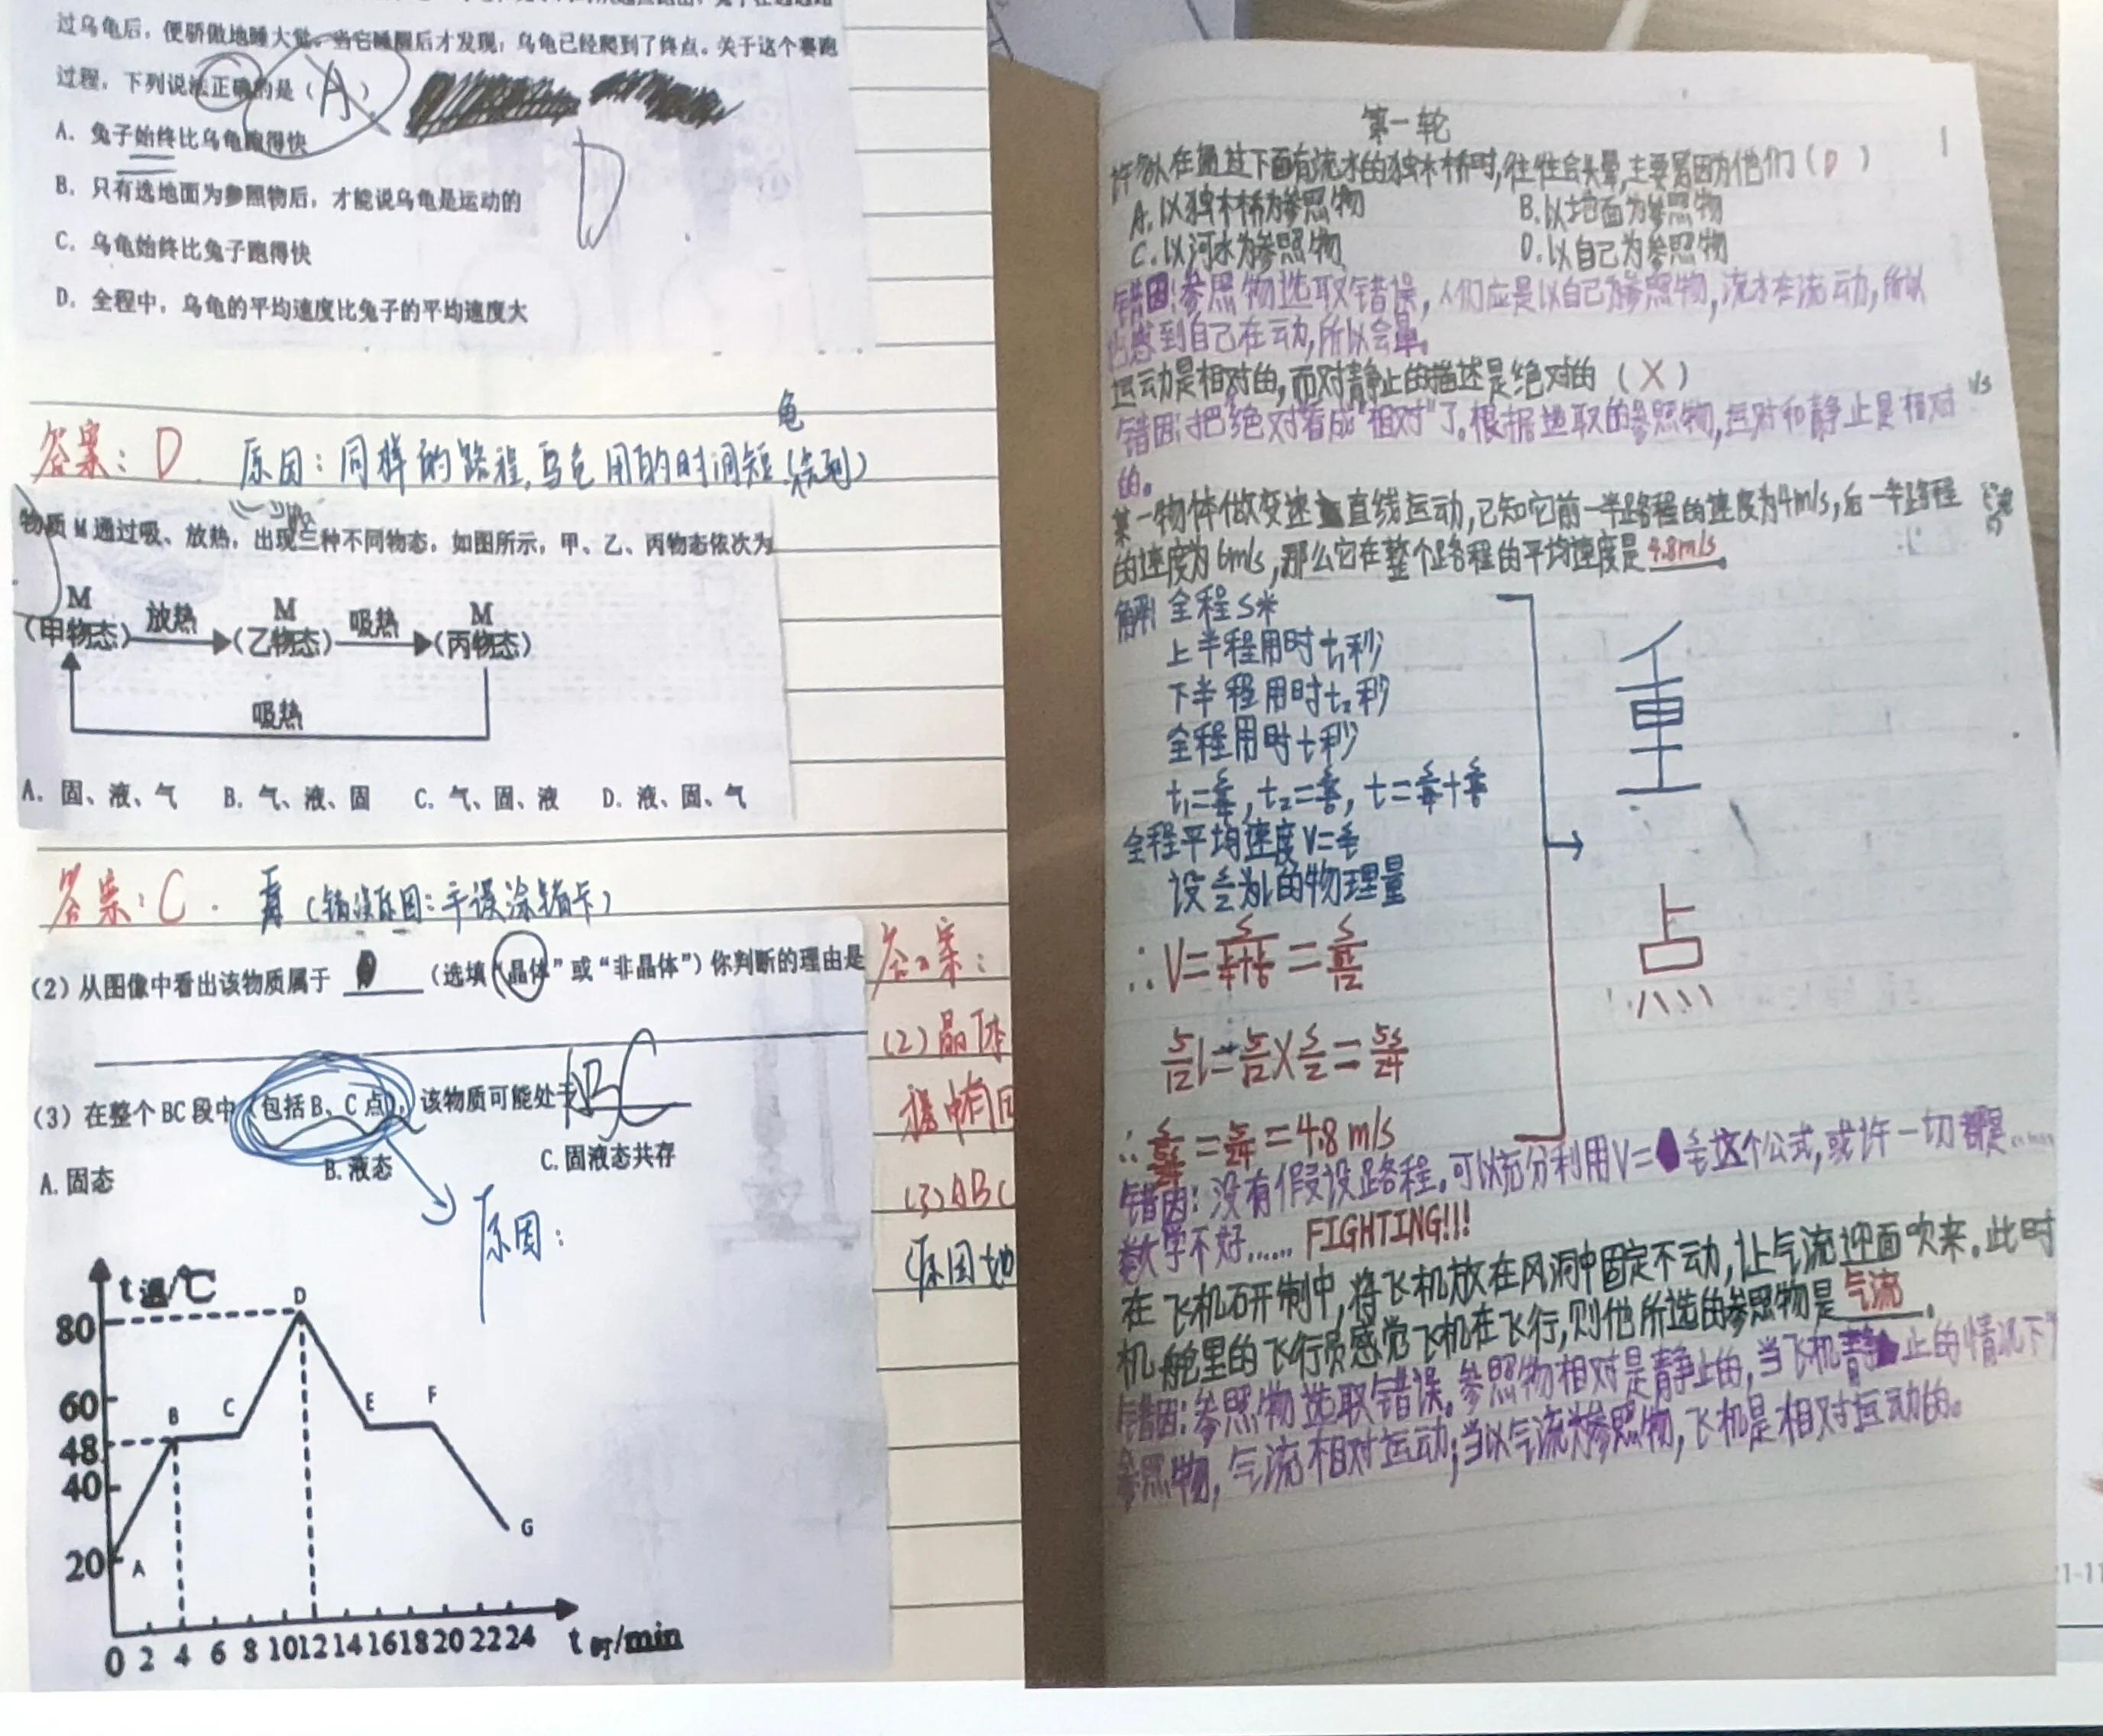 过乌龟后，便骄傲地睡大觉。当它睡醒后才发现，乌龟已经爬到了终点。关于这个赛跑
过程，下列说法正确的是（A）
D
A．兔子始终比乌龟跑得快
B．只有选地面为参照物后，才能说乌龟是运动的
C．乌龟始终比兔子跑得快
D．全程中，乌龟的平均速度比兔子的平均速度大
龟
答案：D 原因：同样的路程，乌龟用的时间短
物质M通过吸、放热，出现三种不同物态，如图所示，甲、乙、丙物态依次为
M M M
（甲物态） 放热 （乙物态） 吸热 （丙物态）
吸热
A．固、液、气 B．气、液、固 C．气、固、液 D．液、固、气
答案：C．（错误原因：手误涂错卡）
（2）从图像中看出该物质属于 （选填“晶体”或“非晶体”）你判断的理由是
（3）在整个BC段中（包括B、C点），该物质可能处于 ABC
A.固态 B.液态 C.固液态共存
原因：
t温/℃
80
60
48
40
20
A B C D E F G
0 2 4 6 8 10 12 14 16 18 20 22 24 t时/min
答案：
（2）晶体
（3）ABC
（原因
第一轮
1
许多人在通过下面有流水的独木桥时，往往会头晕，主要是因为他们（D）
A.以独木桥为参照物 B.以地面为参照物
C.以河水为参照物 D.以自己为参照物
错因：参照物选取错误，人们应是以自己为参照物，流水在流动，所以
感到自己在动，所以会晕。
运动是相对的，而对静止的描述是绝对的（X）
错因：把“绝对”看成“相对”了。根据选取的参照物，运动和静止是相对
的。
某一物体做变速直线运动，已知它前一半路程的速度为4m/s，后一半路程
的速度为6m/s，那么它在整个路程的平均速度是4.8m/s。
解：全程S米
上半程用时t₁秒
下半程用时t₂秒
全程用时t秒
全程平均速度V=s/t
设s/2为l的物理量
5/12 l=5/12×s/2=5s/24
=4.8 m/s
重
点
错因：没有假设路程。可以充分利用V=s/t这个公式，或许一切都是……
数学不好…… FIGHTING!!!
在飞机研制中，将飞机放在风洞中固定不动，让气流迎面吹来。此时
机舱里的飞行员感觉飞机在飞行，则他所选的参照物是气流。
错因：参照物选取错误。参照物相对是静止的，当飞机静止的情况下
参照物，气流相对运动；当以气流为参照物，飞机是相对运动的。